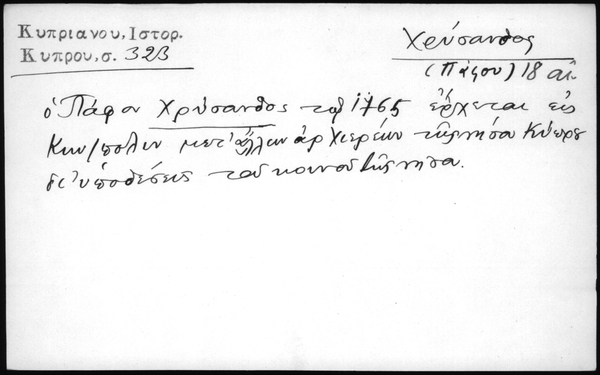 Κυπριανου, Ιστορ.
Κυπρου, σ. 323
Χρύσανθος
(Πάφου) 18 αι.
ὁ Πάφου Χρύσανθος τῷ 1765 ἔρχεται εἰς
Κων/πολιν μετ' ἄλλων ἀρχιερέων τῆς νήσου Κύπρου
δι' ὑποθέσεις τοῦ κοινοῦ τῆς νήσου.